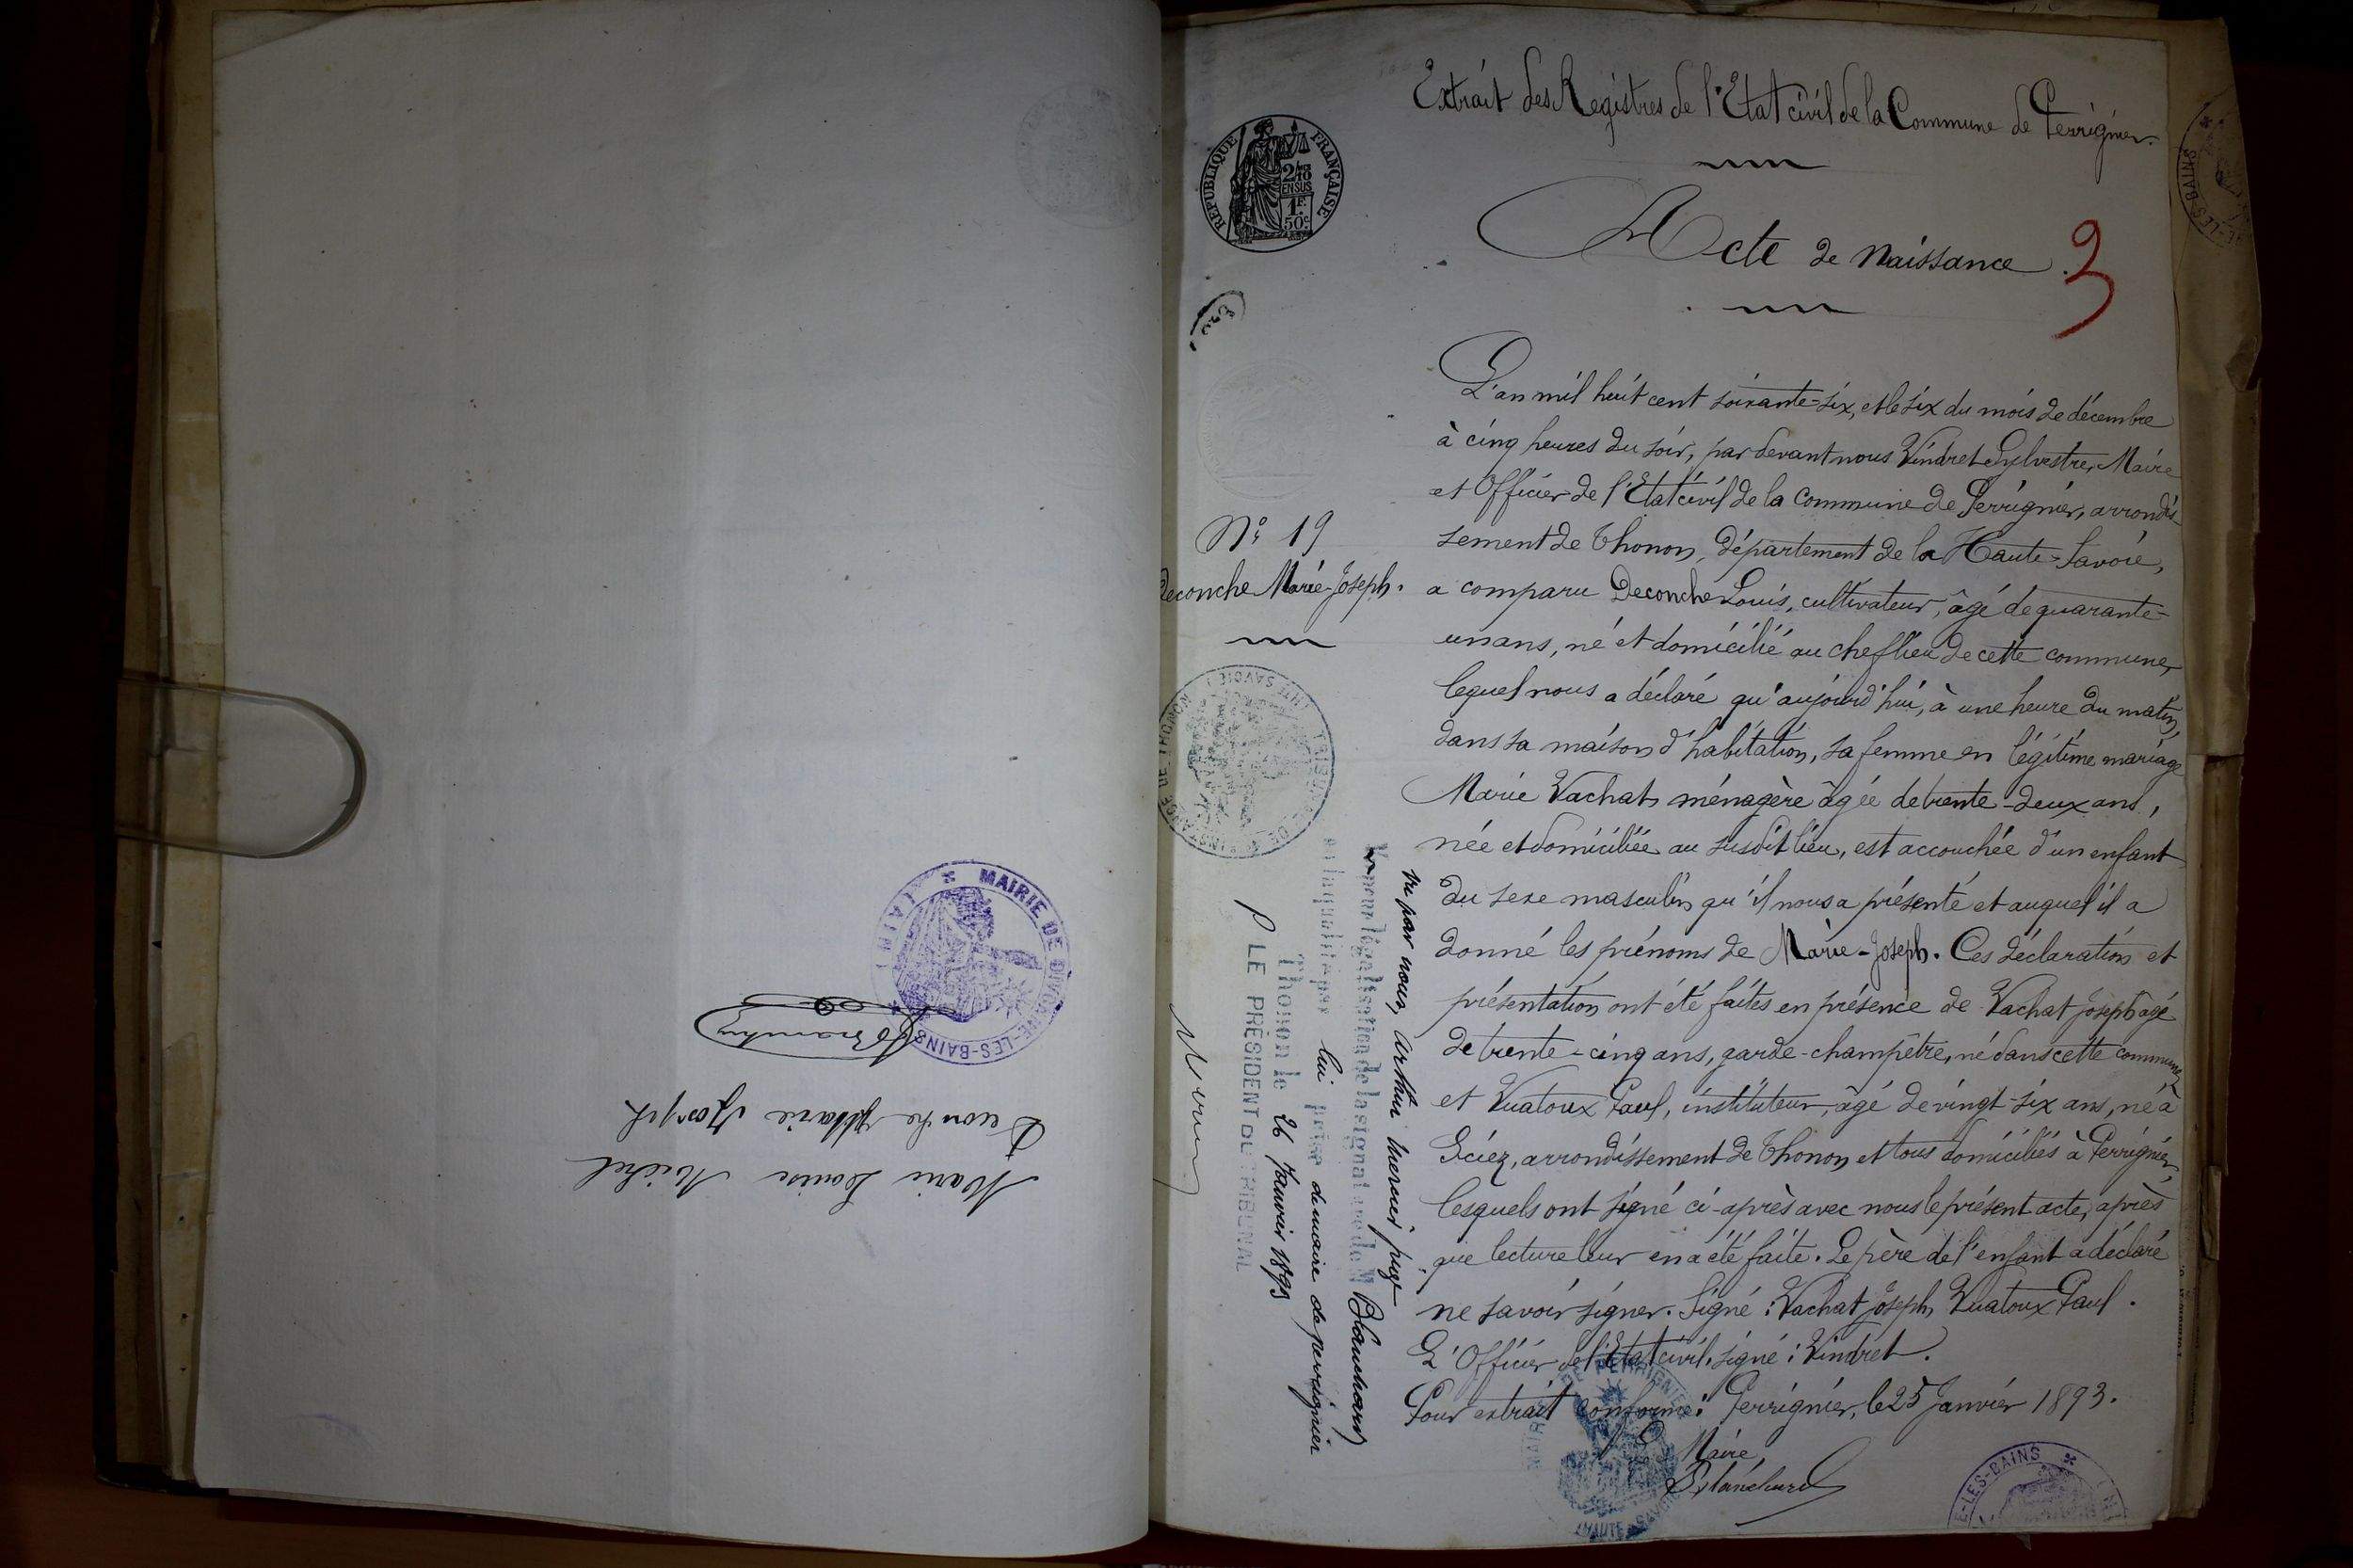 MAIRIE DE DIVONNE-LES-BAINS
(AIN)
Deconche Marie Joseph
Marie Louise Michel
Extrait des Registres de l'Etat civil de la Commune de Perrignier.
RÉPUBLIQUE FRANÇAISE
2/10
EN SUS
1F.
50c.
Acte de Naissance.
L'an mil huit cent soixante-six, et le six du mois de décembre
à cinq heures du soir, par devant nous Vindret Sylvestre, Maire
et Officier de l'Etat civil de la commune de Perrignier, arrondis-
sement de Thonon, département de la Haute-Savoie,
a comparu Deconche Louis, cultivateur, âgé de quarante-
un ans, né et domicilié au chef lieu de cette commune,
lequel nous a déclaré qu'aujourd'hui, à une heure du matin,
dans sa maison d'habitation, sa femme en légitime mariage
Marie Vachat ménagère âgée de trente-deux ans,
née et domiciliée au susdit lieu, est accouchée d'un enfant
du sexe masculin qu'il nous a présenté et auquel il a
donné les prénoms de Marie-Joseph. Ces déclaration et
présentation ont été faites en présence de Vachat Joseph âgé
de trente-cinq ans, garde-champêtre, né dans cette commune,
et Vuatoux Paul, instituteur, âgé de vingt-six ans, né à
Sciez, arrondissement de Thonon et tous domiciliés à Perrignier,
lesquels ont signé ci-après avec nous le présent acte, après
que lecture leur en a été faite. Le père de l'enfant a déclaré
ne savoir signer. Signé: Vachat Joseph, Vuatoux Paul.
L'Officier de l'Etat civil, signé: Vindret.
Pour extrait conforme: Perrignier, le 25 Janvier 1893.
Le Maire
Blanchard
N° 19
Deconche Marie-Joseph.
vu par nous, Arthur Mercier juge
Vu pour légalisation de la signature de M Blanchard
en la qualité par lui prise de maire de perrignier
Thonon le 26 Janvier 1893
P LE PRÉSIDENT DU TRIBUNAL